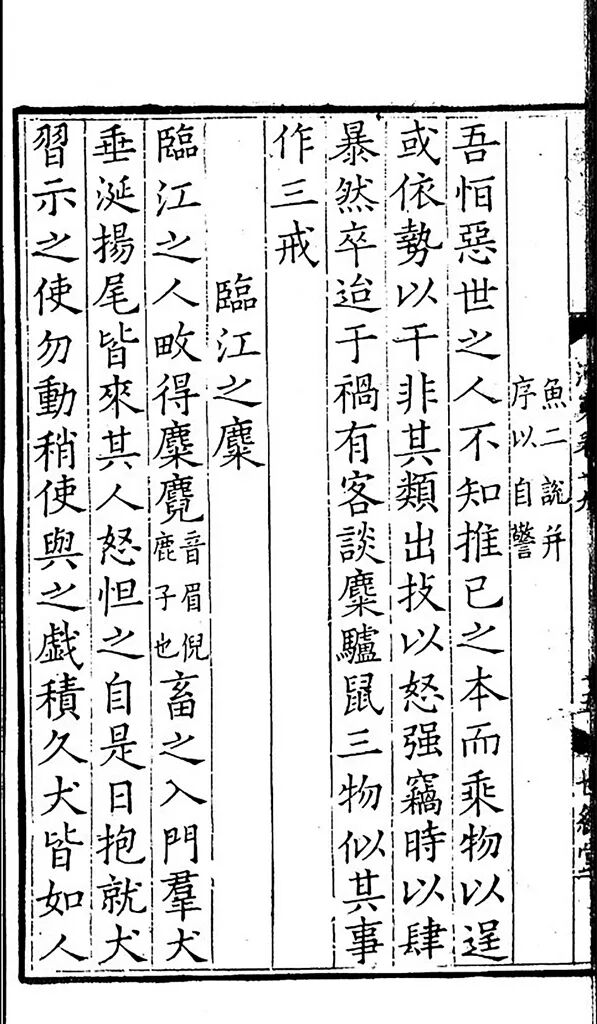 魚二說并
序以自警
吾怕惡世之人不知推已之本而乘物以逞
或依勢以干非其類出技以怒强竊時以肆
暴然卒迨于禍有客談麋驢鼠三物似其事
作三戒
臨江之麋
臨江之人畋得麋麑音眉倪鹿子也畜之入門羣犬
垂涎揚尾皆來其人怒怛之自是日抱就犬
習示之使勿動稍使與之戯積久犬皆如人